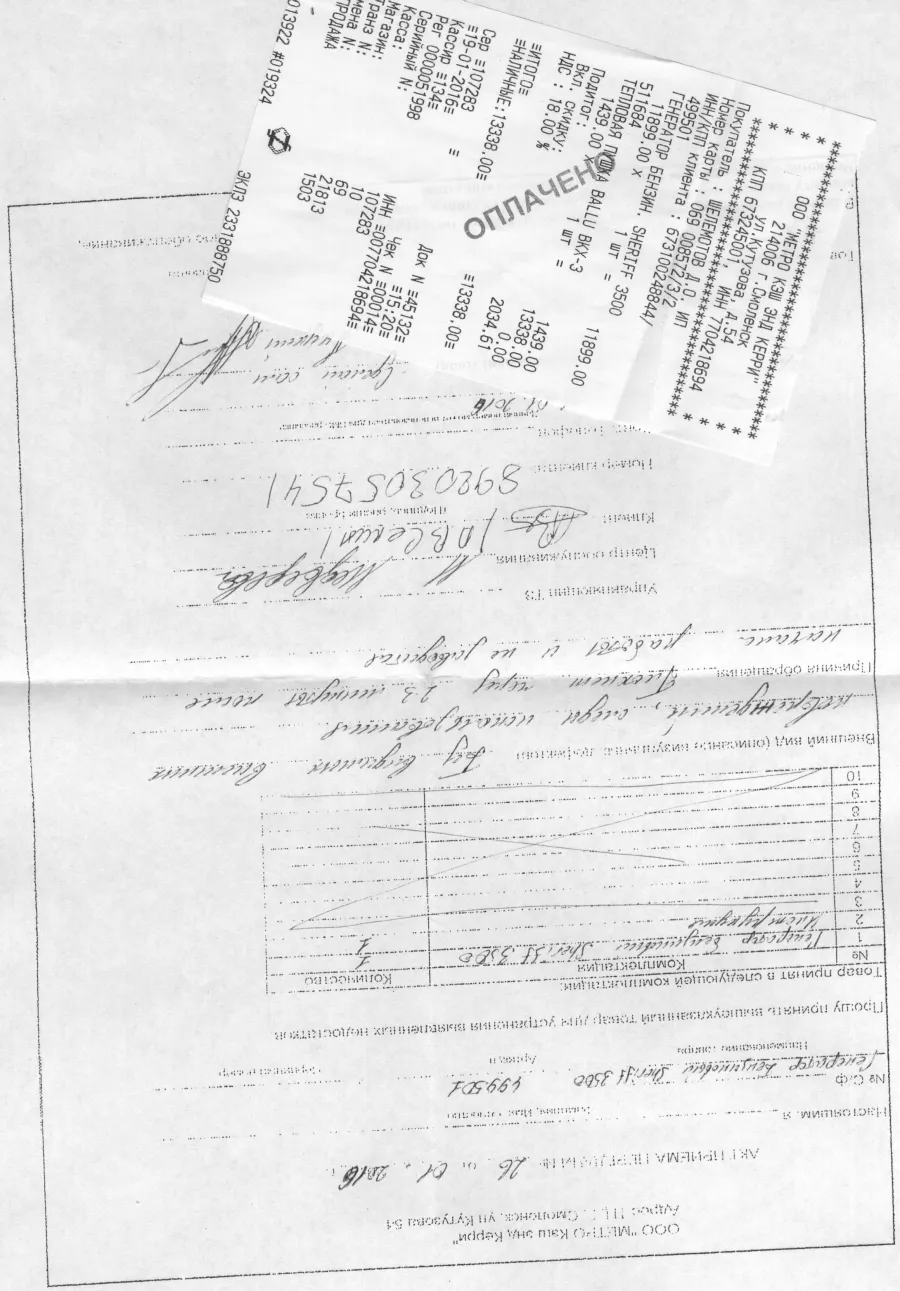 * * * * * * * * * * * * * * * * * * * * * *
ООО "МЕТРО КЭШ ЭНД КЕРРИ"
214006 г.Смоленск
ул.Кутузова, д.54
КПП 673245001, ИНН 7704218694
* * * * * * * * * * * * * * * * * * * * * *
Покупатель : ШЕЛЕМОТОВ Д.О. ИП
Номер карты : 069 008572372
ИНН/КПП клиента : 673100248844/
499501
ГЕНЕРАТОР БЕНЗИН. SHERIFF 3500
11899.00 X 1 шт = 11899.00
511684
ТЕПЛОВАЯ ПУШКА BALLU BKX-3
1439.00 1 шт = 1439.00
Подитог: 13338.00
Вкл. скидку: 0.00
НДС : 18.00 % 2034.61
ОПЛАЧЕНО
≡ИТОГО≡ ≡13338.00≡
≡НАЛИЧНЫЕ:13338.00≡
Сер ≡107283 Док N ≡45132≡
≡19-01-2016≡ ≡15:20≡
Кассир ≡134≡ Чек N ≡00014≡
Рег 0000051998 ИНН ≡007704218694≡
Серийный N: 107283
Касса: 10
Магазин: 69
Транз N: 21813
мена N: 1503
ПРОДАЖА
013922 #019324 ЭКЛЗ 2331888750
ООО "МЕТРО Кэш энд Керри"
Адрес: г. Смоленск, ул Кутузова 54
АКТ ПРИЕМА ПЕРЕДАЧИ № 26 01. 2016 г.
Настоящим, я
Фамилия, Имя, Отчество
№ С/ф
Генератор Бензиновый Sheriff 3500 499501
Наименование товара Артикул
Прошу принять вышеуказанный товар для устранения выявленных недостатков
Товар принят в следующей комплектации:
№ Комплектация Количество
1 Генератор бензиновый Sheriff 3500 1
2 Инструкция 1
3
4
5
6
7
8
9
10
Внешний вид (описание визуальных дефектов) Без видимых внешних
повреждений, следы использования
Причина обращения Глохнет через 2-3 минуты после
начала работы и не заводится
Управляющий ТЗ Медведева
Центр обслуживания
Клиент
Подпись, расшифровка
Номер клиента 89203057541
01.2016